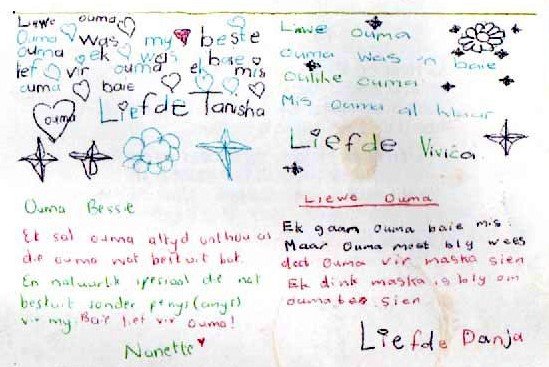 Liewe ouma
Ouma was my beste
ouma ek was baie
lief vir ouma ek mis
ouma baie
Liefde Tanisha
ouma
Liewe Ouma
ouma was 'n baie
oulike ouma
Mis ouma al klaar
Liefde Vivica
Ouma Bessie
Ek sal ouma altyd onthou as
die ouma wat beskuit bak
En natuurlik spesiaal die
beskuit sonder
vir my. Baie lief vir ouma!
Nanette
Liewe Ouma
Ek gaan ouma baie mis.
Maar Ouma moet bly wees
dat ouma vir maska sien
Ek dink maska is bly om
ouma te sien
Liefde Danja